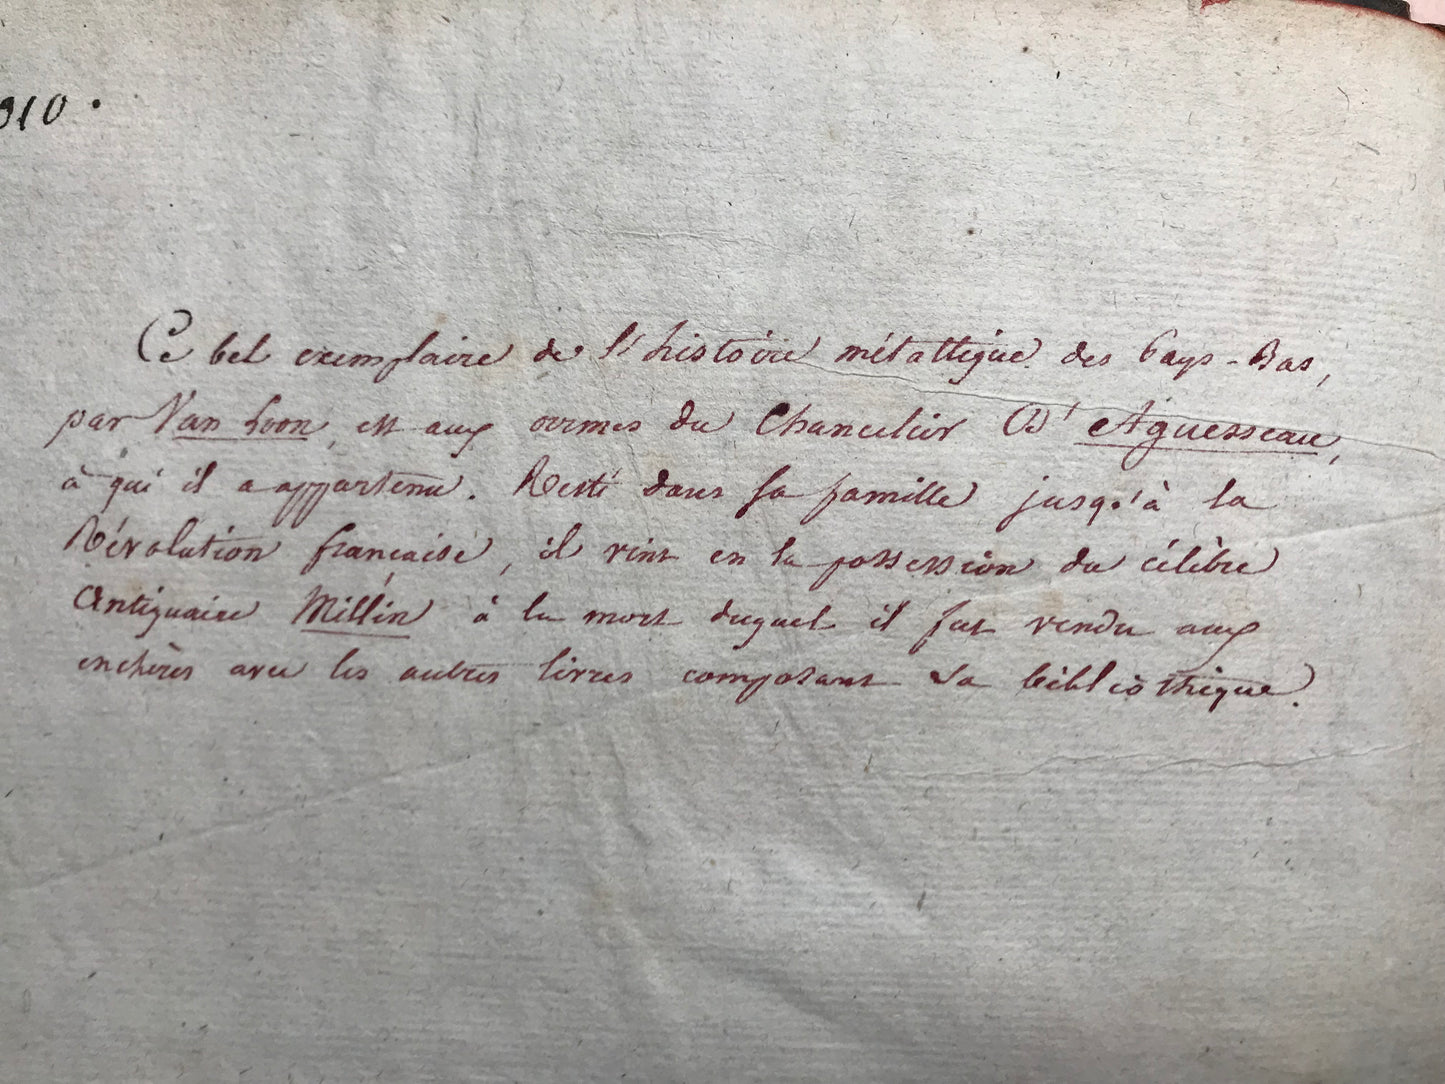 910.
Ce bel exemplaire de l'histoire métallique des Pays-Bas,
par Van Loon, est aux armes du Chancelier D'Aguesseau,
à qui il a appartenu. Resté dans sa famille jusqu'à la
Révolution française, il vint en la possession du célèbre
Antiquaire Millin à la mort duquel il fut vendu aux
enchères avec les autres livres composant sa bibliothèque.